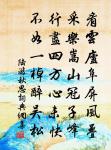 看雲盧阜屏風疊
采藥嵩山冠子峰
行盡四方心未快
不如一棹醉吳松
陸游秋思詞典網